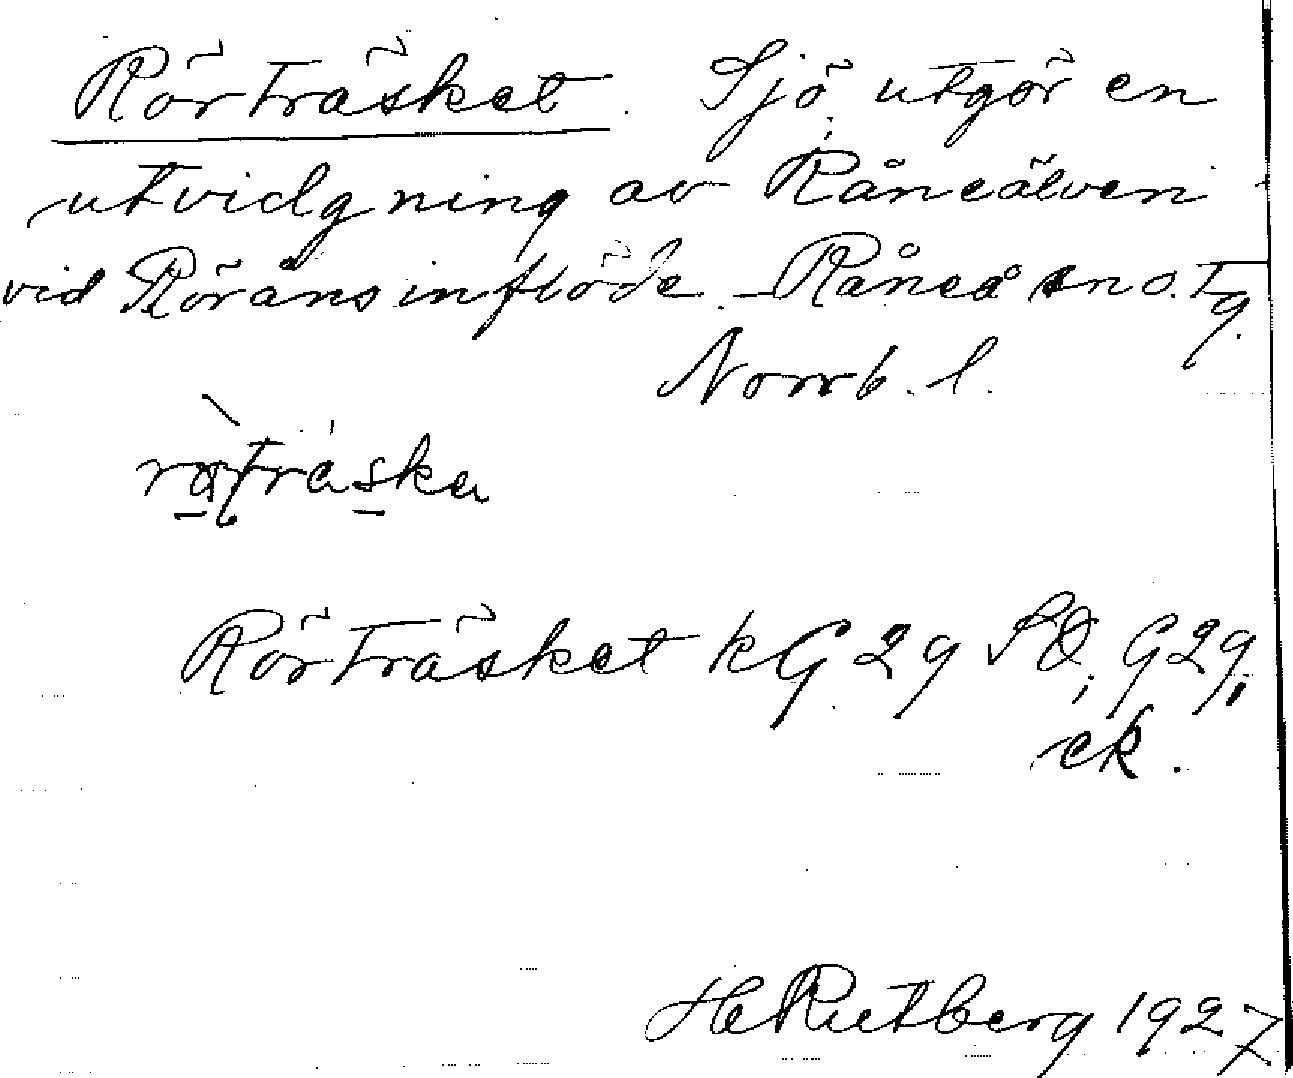 Rörträsket. Sjö, utgör en
utvidgning av Råneälven
vid Röråns inflöde. – Råneå sn o. tg.
Norrb. l.
Rörträsket kG 29 SO, G29,
ek.
H Rutberg 1927